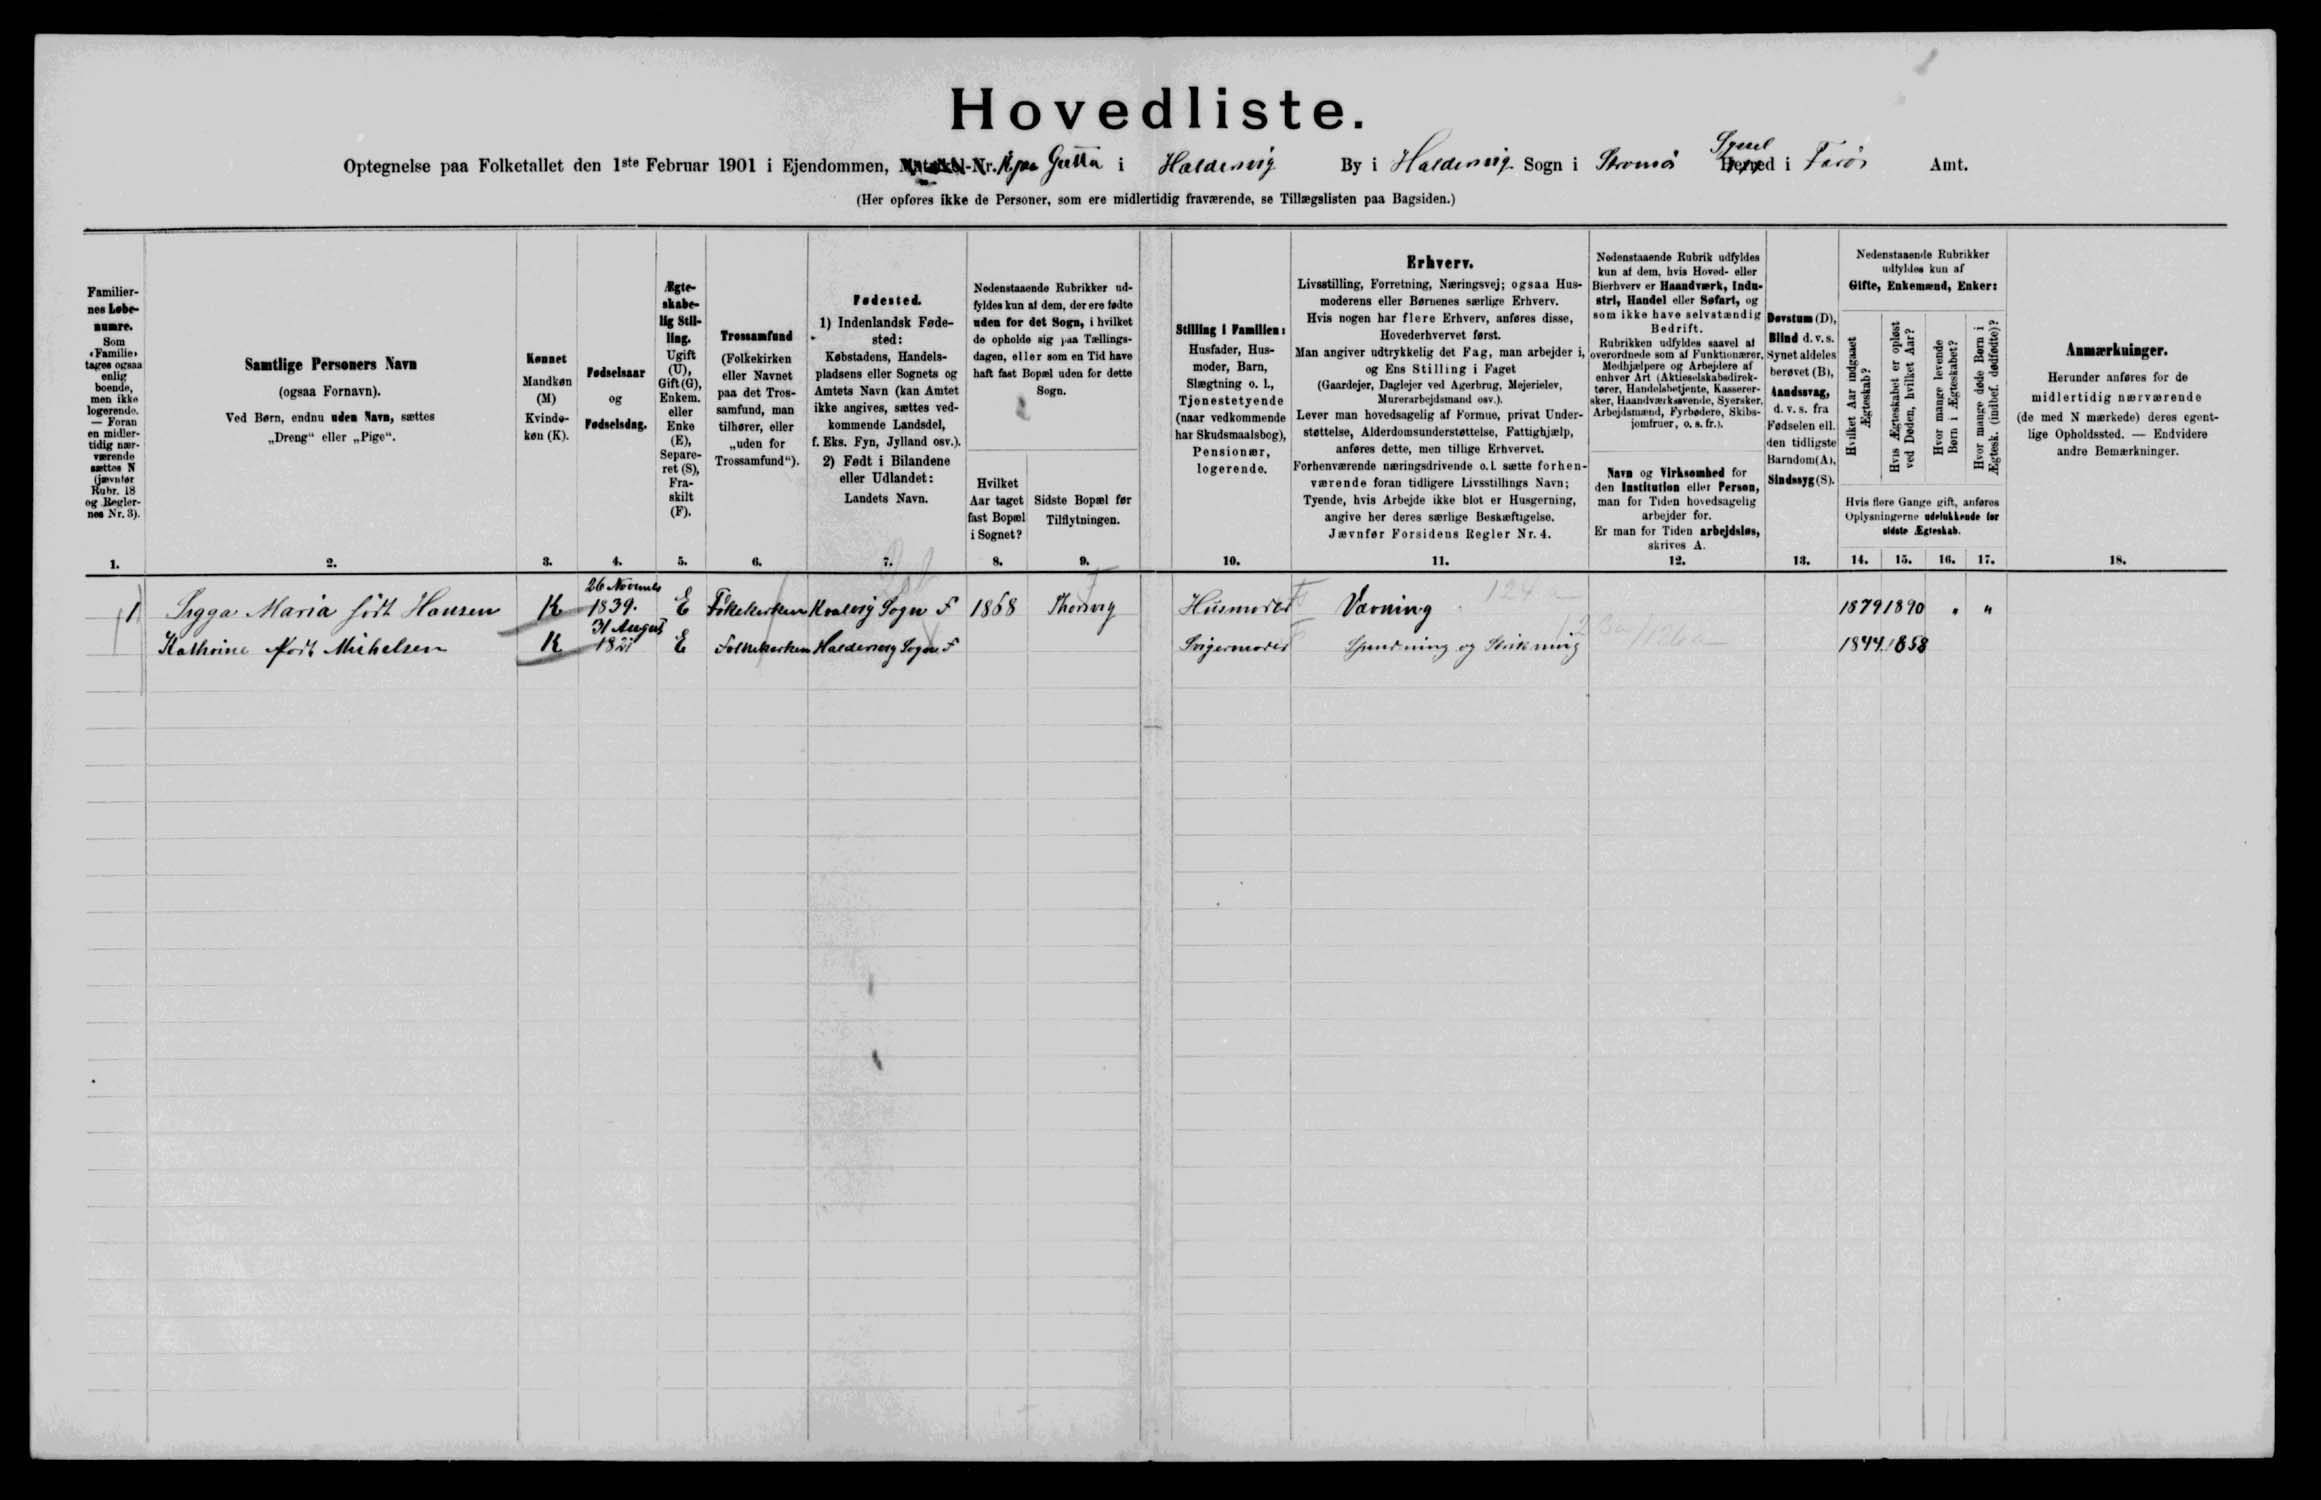 Hovedliste.
Optegnelse paa Folketallet den 1ste Februar 1901 i Ejendommen, Matrikel-Nr. Gutta i Haldersvig By i Haldersvig Sogn i Stromö Syssel Herred i Faröi Amt.
(Her opføres ikke de Personer, som ere midlertidig fraværende, se Tillægslisten paa Bagsiden.)
Familier-
nes Løbe-
numre.
Som
«Familie»
tages ogsaa
enlig
boende,
men ikke
logerende.
— Foran
en midler-
tidig nær-
værende
sættes N
(jævnfør
Rubr. 18
og Regler-
nes Nr. 3).
1.
Samtlige Personers Navn
(ogsaa Fornavn).
Ved Børn, endnu uden Navn, sættes
„Dreng“ eller „Pige“.
2.
Kønnet
Mandkøn
(M)
Kvinde-
køn (K).
3.
Fødselsaar
og
Fødselsdag.
4.
Ægte-
skabe-
lig Stil-
ling.
Ugift
(U),
Gift (G),
Enkem.
eller
Enke
(E),
Separe-
ret (S),
Fra-
skilt
(F).
5.
Trossamfund
(Folkekirken
eller Navnet
paa det Tros-
samfund, man
tilhører, eller
„uden for
Trossamfund“).
6.
Fødested.
1) Indenlandsk Føde-
sted:
Købstadens, Handels-
pladsens eller Sognets og
Amtets Navn (kan Amtet
ikke angives, sættes ved-
kommende Landsdel,
f. Eks. Fyn, Jylland osv.).
2) Født i Bilandene
eller Udlandet:
Landets Navn.
7.
Nedenstaaende Rubrikker ud-
fyldes kun af dem, der ere fødte
uden for det Sogn, i hvilket
de opholde sig paa Tællings-
dagen, eller som en Tid have
haft fast Bopæl uden for dette
Sogn.
Hvilket
Aar taget
fast Bopæl
i Sognet?
8.
Sidste Bopæl før
Tilflytningen.
9.
Stilling i Familien:
Husfader, Hus-
moder, Barn,
Slægtning o. l.,
Tjenestetyende
(naar vedkommende
har Skudsmaalsbog),
Pensionær,
logerende.
10.
Erhverv.
Livsstilling, Forretning, Næringsvej; ogsaa Hus-
moderens eller Børnenes særlige Erhverv.
Hvis nogen har flere Erhverv, anføres disse,
Hovederhvervet først.
Man angiver udtrykkelig det Fag, man arbejder i,
og Ens Stilling i Faget
(Gaardejer, Daglejer ved Agerbrug, Mejerielev,
Murerarbejdsmand osv.).
Lever man hovedsagelig af Formue, privat Under-
støttelse, Alderdomsunderstøttelse, Fattighjælp,
anføres dette, men tillige Erhvervet.
Forhenværende næringsdrivende o. l. sætte forhen-
værende foran tidligere Livsstillings Navn;
Tyende, hvis Arbejde ikke blot er Husgerning,
angive her deres særlige Beskæftigelse.
Jævnfør Forsidens Regler Nr. 4.
11.
Nedenstaaende Rubrik udfyldes
kun af dem, hvis Hoved- eller
Bierhverv er Haandværk, Indu-
stri, Handel eller Søfart, og
som ikke have selvstændig
Bedrift.
Rubrikken udfyldes saavel af
overordnede som af Funktionærer,
Medhjælpere og Arbejdere af
enhver Art (Aktieselskabsdirek-
tører, Handelsbetjente, Kasserer-
sker, Haandværkssvende, Syersker,
Arbejdsmænd, Fyrbødere, Skibs-
jomfruer, o. s. fr.).
Navn og Virksomhed for
den Institution eller Person,
man for Tiden hovedsagelig
arbejder for.
Er man for Tiden arbejdsløs,
skrives A.
12.
Døvstum (D),
Blind d. v. s.
Synet aldeles
berøvet (B),
Aandssvag,
d. v. s. fra
Fødselen ell.
den tidligste
Barndom (A),
Sindssyg (S).
13.
Nedenstaaende Rubrikker
udfyldes kun af
Gifte, Enkemænd, Enker:
Hvilket Aar indgaaet
Ægteskab?
Hvis Ægteskabet er opløst
ved Døden, hvilket Aar?
Hvor mange levende
Børn i Ægteskabet?
Hvor mange døde Børn i
Ægtesk. (indbef. dødfødte)?
Hvis flere Gange gift, anføres
Oplysningerne udelukkende for
sidste Ægteskab.
14. 15. 16. 17.
Anmærkninger.
Herunder anføres for de
midlertidig nærværende
(de med N mærkede) deres egent-
lige Opholdssted. — Endvidere
andre Bemærkninger.
18.
1 Sygga Maria fört Hansen K 26 Novemb 1839. E Kvalvig Sogn F 1868 Thorsvig Husmoder Vævning 124 1879 1890 " "
Kathrine födt Michelsen K 31 August 1821 E Folkekerken Haldersvig Sogn F Svigermoder Spindning og Strikning 1844 1858